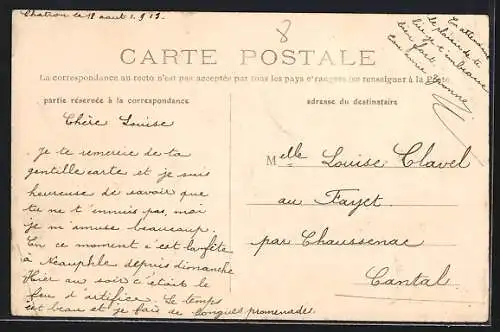 le 18 aout 1913
8
En attendant
le plaisir de te
lire je t'embrasse
bien fort.
Ton amie Yvonne
CARTE POSTALE
La correspondance au recto n'est pas acceptée par tous les pays étrangers (se renseigner à la Poste)
partie réservée à la correspondance
adresse du destinataire
Chère Louise
Je te remercie de ta
gentille carte et je suis
heureuse de savoir que
tu ne t'ennuis pas, moi
je m'amuse beaucoup.
En ce moment c'est la fête
à Neauphle depuis dimanche
Hier au soir c'était le
feu d'artifice. Le temps
est beau et je fais de longues promenades.
Melle Louise Clavel
au Fayet
par Chaussenac
Cantal